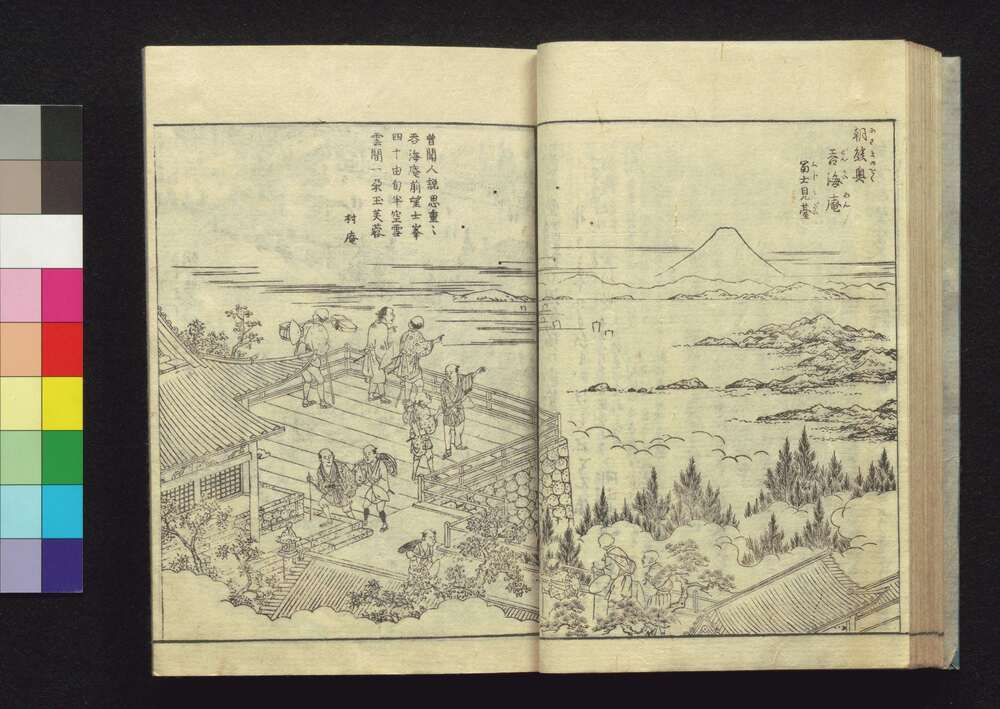 朝熊奥
呑海庵
冨士見臺
曾聞人説思重〻
呑海庵前望士峯
四十由旬半空雪
雲間一朶玉芙蓉
村庵